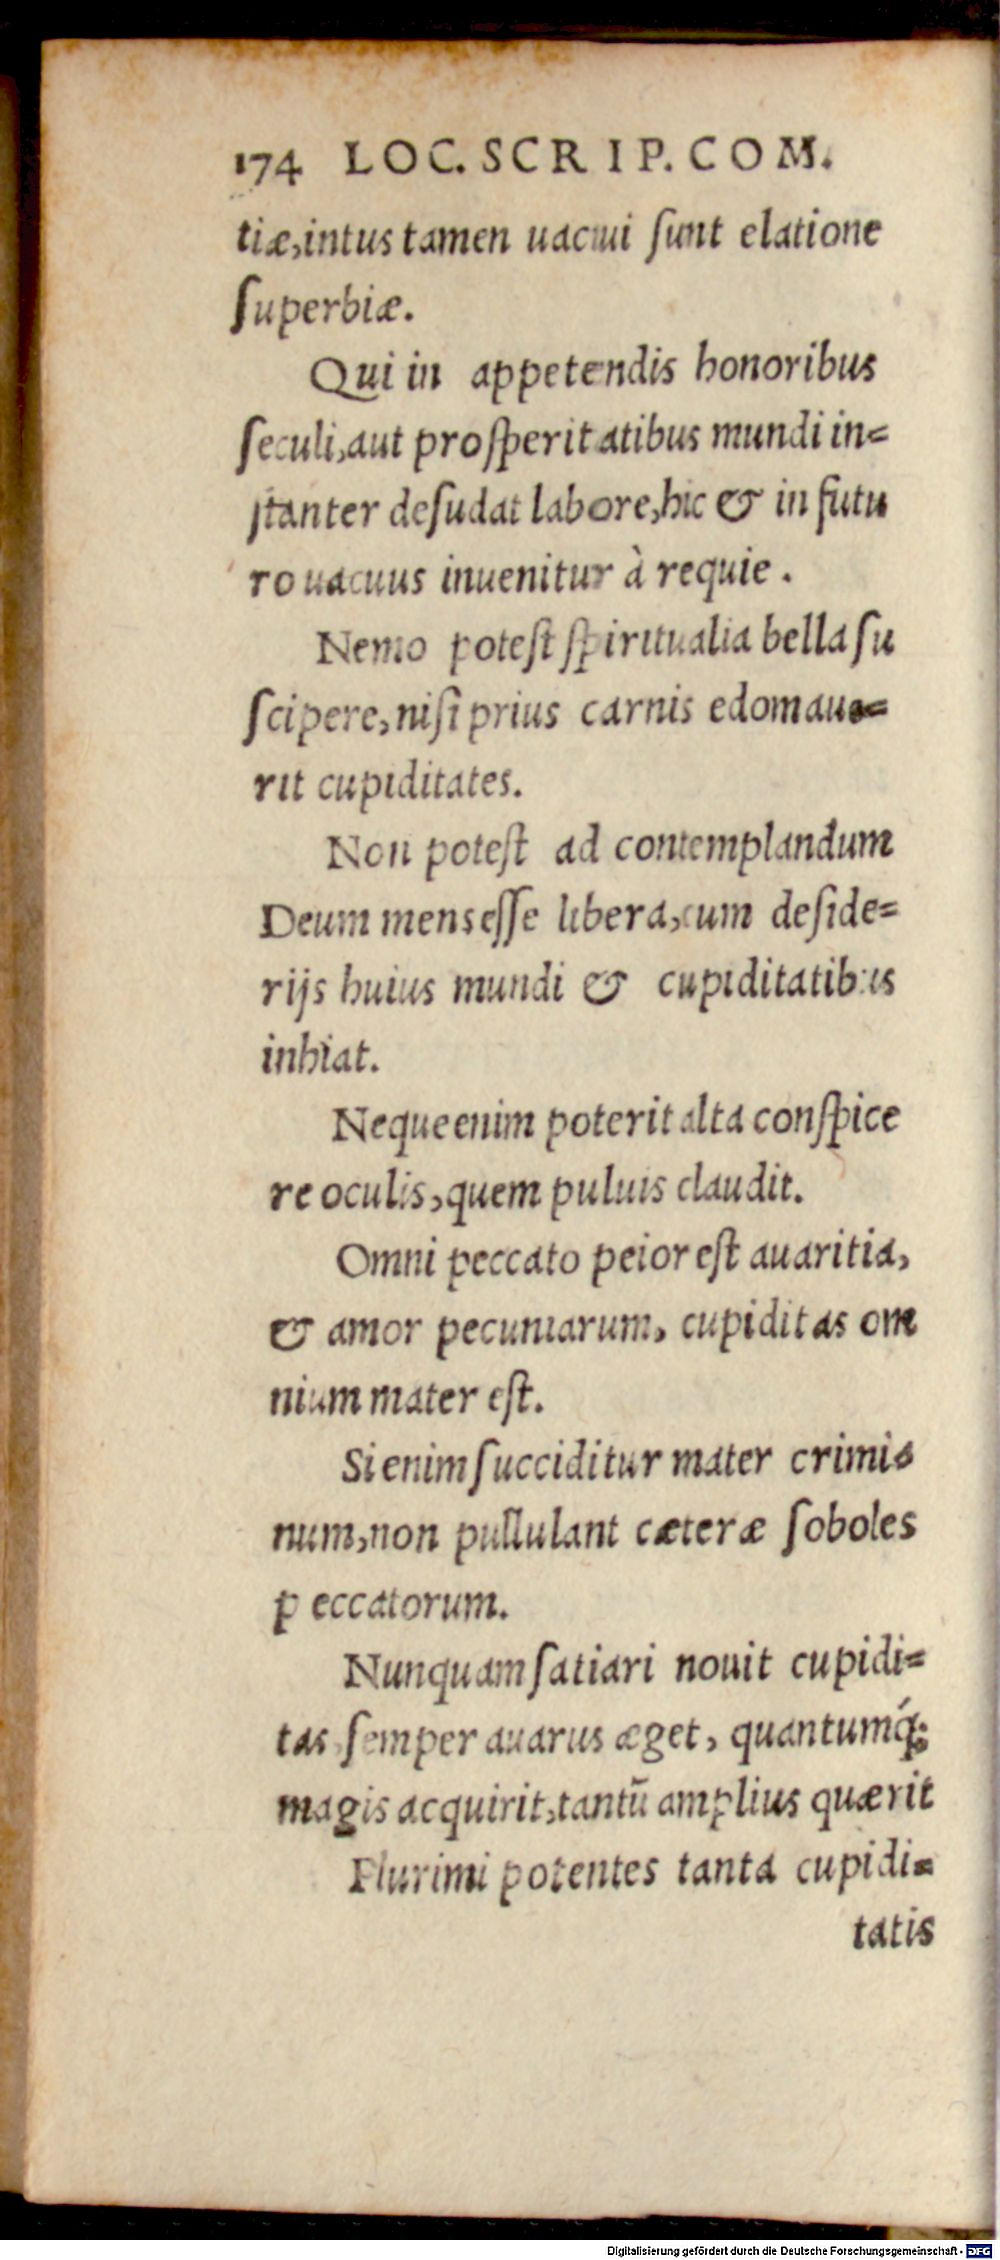 174 LOC. SCRIP. COM.
tiæ, intus tamen uacui sunt elatione
superbiæ.
Qui in appetendis honoribus
seculi, aut prosperitatibus mundi in=
stanter desudat labore, hic & in futu
ro uacuus inuenitur à requie.
Nemo potest spiritualia bella su
scipere, nisi prius carnis edomaue=
rit cupiditates.
Non potest ad contemplandum
Deum mens esse libera, cum deside=
rijs huius mundi & cupiditatibus
inhiat.
Neque enim poterit alta conspice
re oculis, quem puluis claudit.
Omni peccato peior est auaritia,
& amor pecuniarum, cupiditas om
nium mater est.
Si enim succiditur mater crimi=
num, non pullulant cæteræ soboles
peccatorum.
Nunquam satiari nouit cupidi=
tas, semper auarus æget, quantumq́;
magis acquirit, tantũ amplius quærit
Plurimi potentes tanta cupidi=
tatis
Digitalisierung gefördert durch die Deutsche Forschungsgemeinschaft - DFG